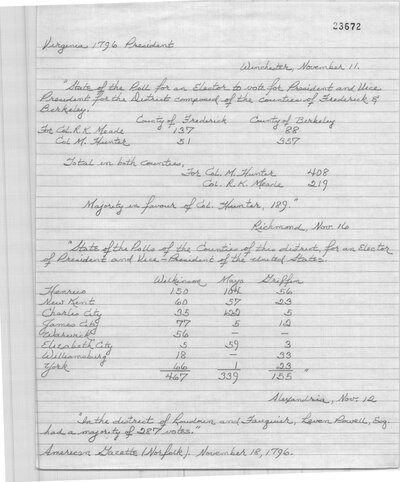 23672
Virginia 1796 President
Winchester, November 11.
"State of the Poll for an Elector to vote for President and Vice
President for the District composed of the counties of Frederick &
Berkeley.
County of Frederick County of Berkeley
For Col. R. K. Meade 137 88
Col M. Hunter 51 357
Total in both counties,
For Col. M. Hunter 408
Col. R. K. Meade 219
Majority in favour of Col. Hunter, 189."
Richmond, Nov. 16
"State of the Polls of the Counties of this district, for an Elector
of President and Vice-President of the United States.
Wilkinson Mayo Griffin
Henrico 150 56
New Kent 60 57 23
Charles City 35 5
James City 77 5 12
Warwick 56 — —
Elizabeth City 5 59 3
Williamsburg 18 — 33
York 66 1 23
467 339 155 "
Alexandria, Nov. 12
"In the district of Loudoun and Fauquier, Leven Powell, Esq.
had a majority of 287 votes."
American Gazette (Norfolk). November 18, 1796.